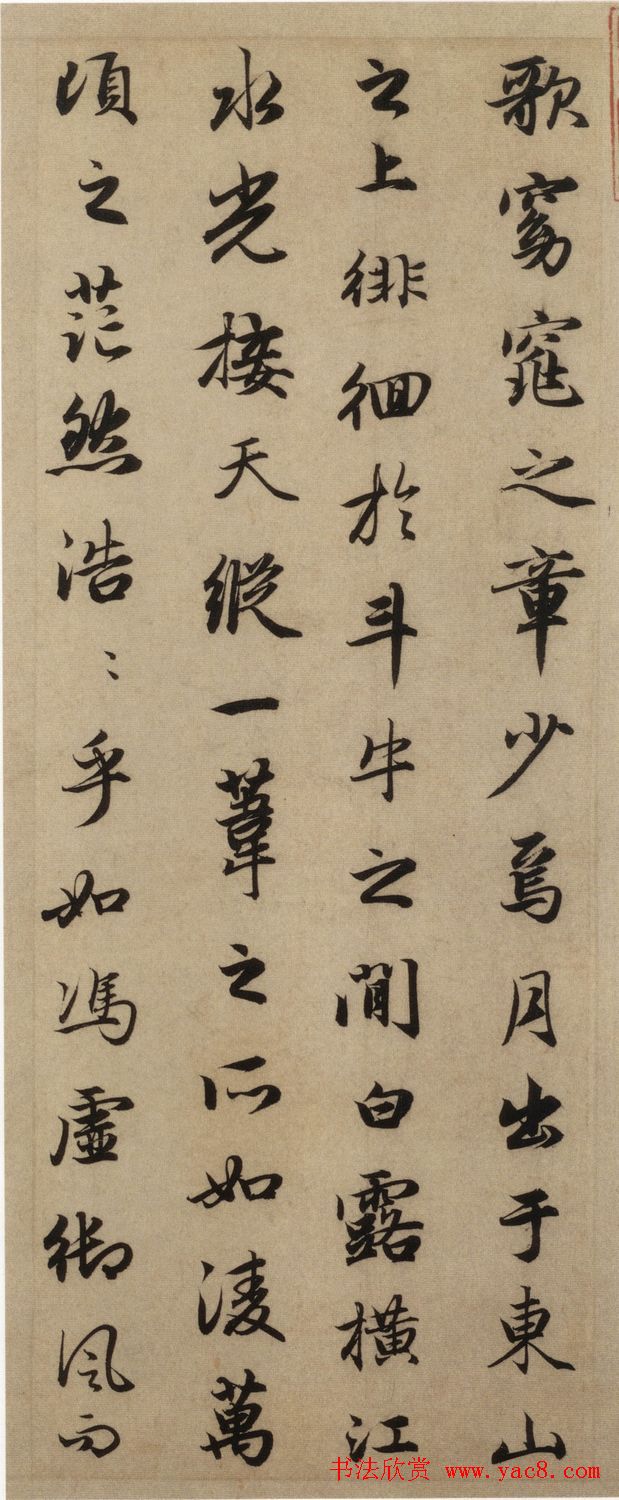 歌窈窕之章少焉月出于東山
之上徘徊於斗牛之間白露橫江
水光接天縱一葦之所如淩萬
頃之茫然浩〻乎如馮虛御風而
书法欣赏 www.yac8.com